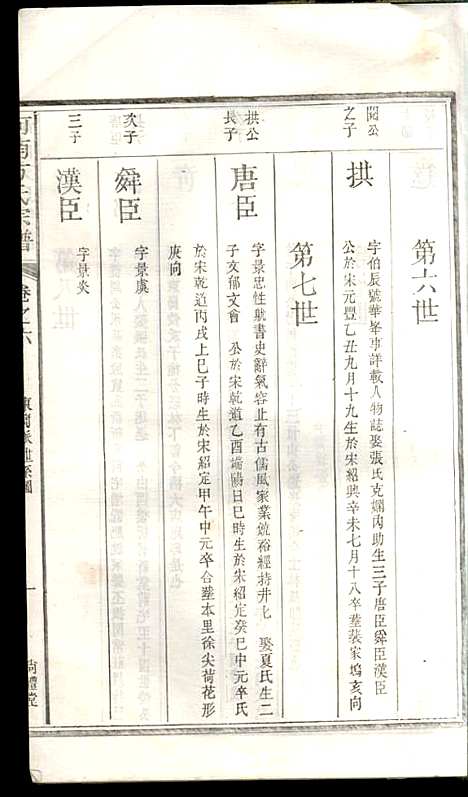 第六世
閎公之子
拱
字伯辰號華峯事詳載人物誌娶張氏克嫻內助生三子唐臣舜臣漢臣
公於宋元豐乙丑九月十九生於宋紹興辛未七月十八卒塟裴家塢亥向
第七世
拱公長子
唐臣
字景忠性躭書史辭氣容止有古儒風家業饒裕經持井七 娶夏氏生二
子友郁文會 公於宋乾道乙酉端陽日巳時生於宋紹定癸巳中元卒氏
於宋乾道丙戌上巳子時生於宋紹定甲午中元卒合塟本里徐尖荷花形
庚向
次子
舜臣
字景虞
三子
漢臣
字景炎
河南方氏宗譜
卷之六
系圖
一
尚禮堂